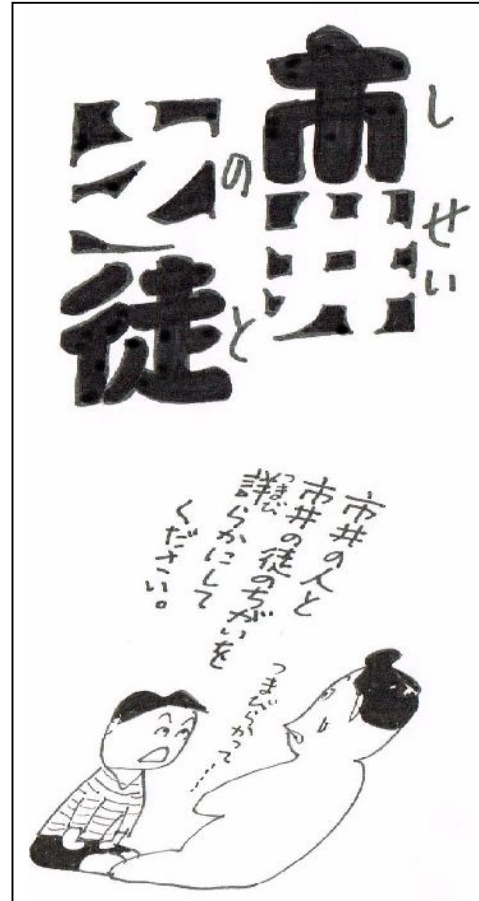 市井
しせい
之徒
のと
市井の人と
市井の徒のちがいを
詳らかにして
つまび
ください。
つまびらかって……